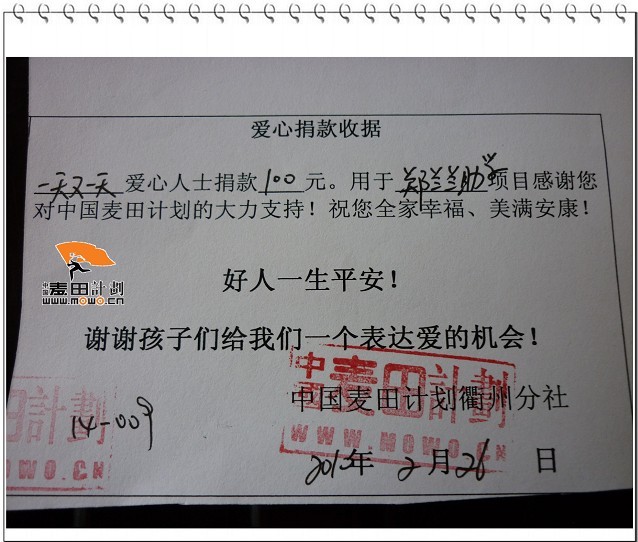 爱心捐款收据
一天又一天 爱心人士捐款 100 元。用于 郑兰兰助学 项目感谢您
对中国麦田计划的大力支持！祝您全家幸福、美满安康！
中国麦田計劃
www.mowo.cn
好人一生平安！
谢谢孩子们给我们一个表达爱的机会！
中国麦田計劃
WWW.MOWO.CN
中国麦田计划衢州分社
計劃
MOWO.CN
14-009
2012年 2 月 26 日